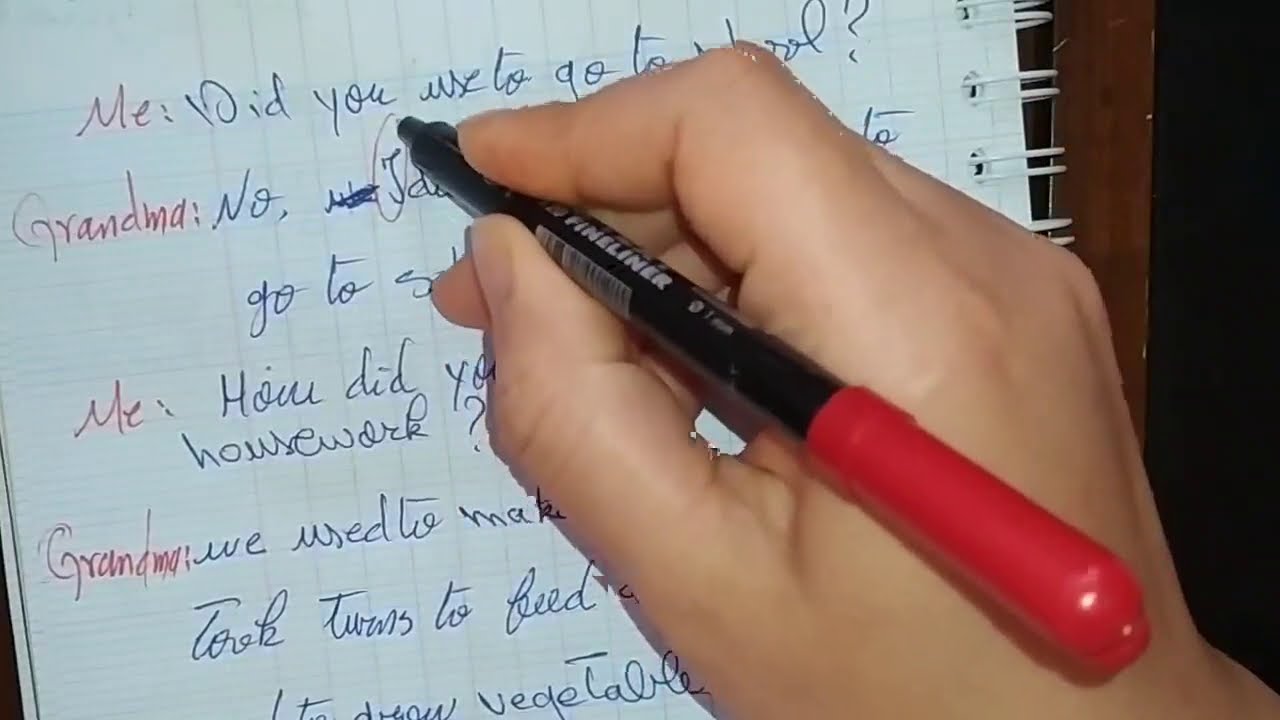 Me: Did you use to go to school?
Grandma: No, I to
go to
Me: How did you
housework ?
Grandma: we used to make
Took turns to feed
to draw vegetable
FINELINER